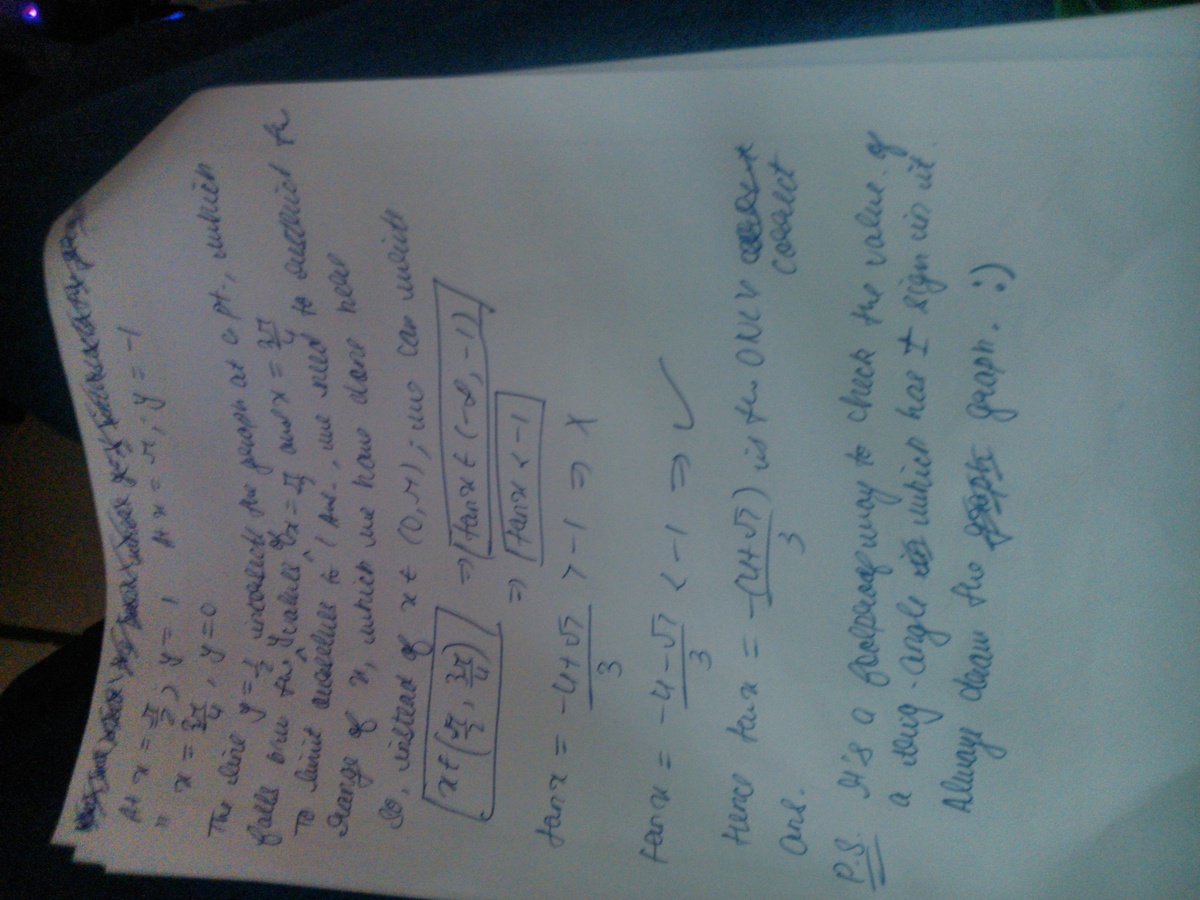 At x = π/2, y = 1 At x = π, y = -1
" x = 3π/4, y = 0
The line y = 1/2 intersects the graph at a pt., which
falls b/w the values of x = π/2 and x = 3π/4
To limit ourselves to 1 ans., we need to restrict the
range of x, which we have done here
So, instead of x ∈ (0, π), we can write
x ∈ (π/2, 3π/4) ⇒ tan x ∈ (-∞, -1)
⇒ tan x < -1
tan x = (-4+√7)/3 > -1 ⇒ ×
tan x = (-4-√7)/3 < -1 ⇒ ✓
Hence tan x = -(4+√7)/3 is the ONLY correct
ans.
P.S. It's a way to check the value of
a angle which has ± sign in it.
Always draw the graph. :)